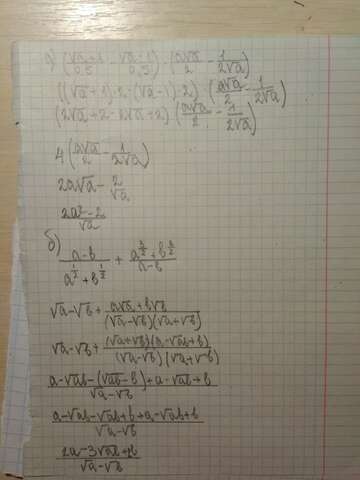 а) (√a+1/0,5 - √a-1/0,5) · (a√a/2 - 1/2√a)
((√a+1)·2-(√a-1)·2)·(a√a/2 - 1/2√a)
(2√a+2-2√a+2)(a√a/2 - 1/2√a)
4(a√a/2 - 1/2√a)
2a√a - 2/√a
2a²-2/√a
б)
a-b/a^1/2+b^1/2 + a^3/2+b^3/2/a-b
√a-√b + a√a+b√b/(√a-√b)(√a+√b)
√a-√b + (√a+√b)(a-√ab+b)/(√a-√b)(√a+√b)
a-√ab-(√ab-b)+a-√ab+b/√a-√b
a-√ab-√ab+b+a-√ab+b/√a-√b
2a-3√ab+2b/√a-√b